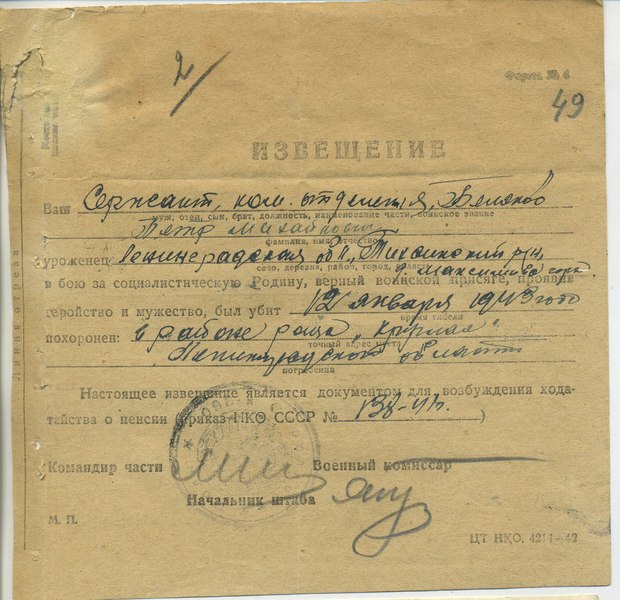 2/
Форма № 4
49
ИЗВЕЩЕНИЕ
Ваш Сержант, ком. отделения, Беляков
муж, отец, сын, брат, должность, наименование части, воинское звание
Петр Михайлович
фамилия, имя, отчество
уроженец Ленинградская обл., Тихвинский р-н,
село, деревня, район, город, область
д. Максимова гора
в бою за социалистическую Родину, верный воинской присяге, проявив
геройство и мужество, был убит 12 января 1943 года
время гибели
похоронен: в районе рощи „Круглая"
точный адрес места
Ленинградской области
погребения
Настоящее извещение является документом для возбуждения хода-
тайства о пенсии (приказ НКО СССР № 138-41г. )
Командир части
Военный комиссар
Начальник штаба
М. П.
ЦТ НКО. 4211—42
Линия отреза